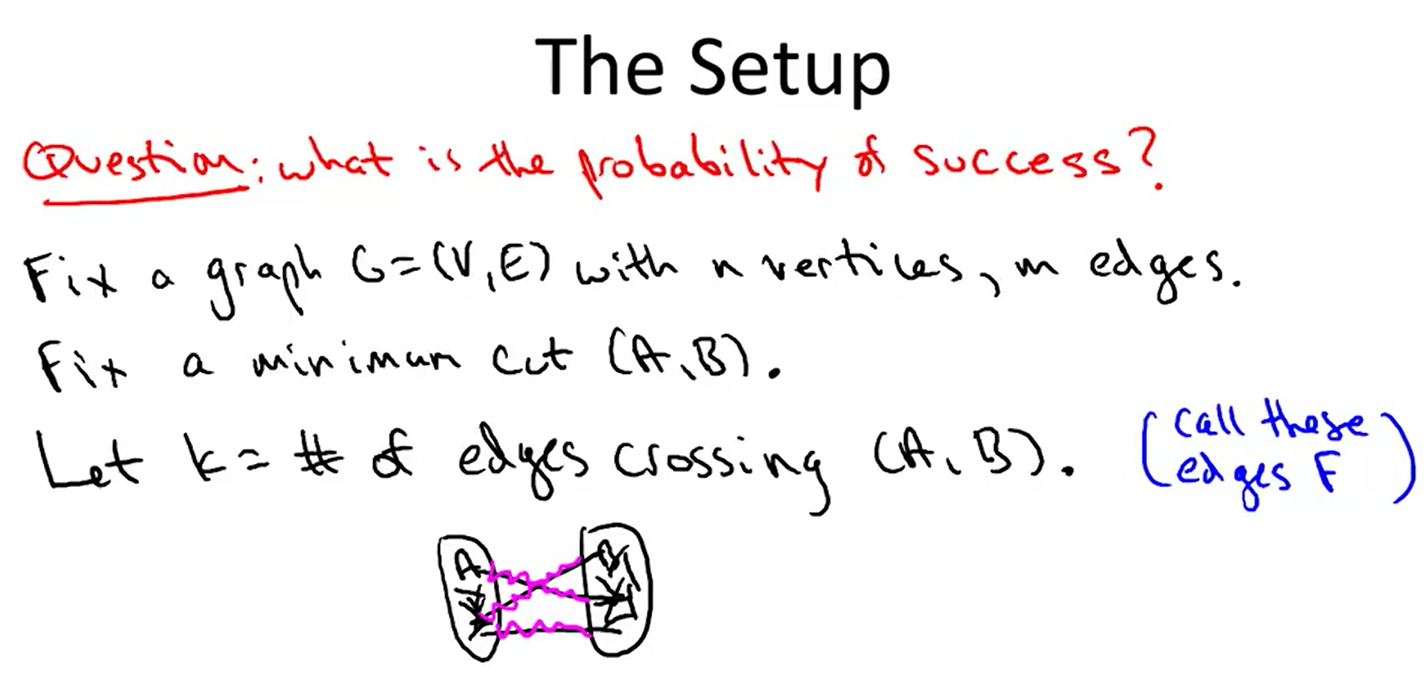 The Setup
Question: what is the probability of success?
Fix a graph G=(V,E) with n vertices, m edges.
Fix a minimum cut (A,B).
Let k = # of edges crossing (A,B). (call these
edges F)
A B